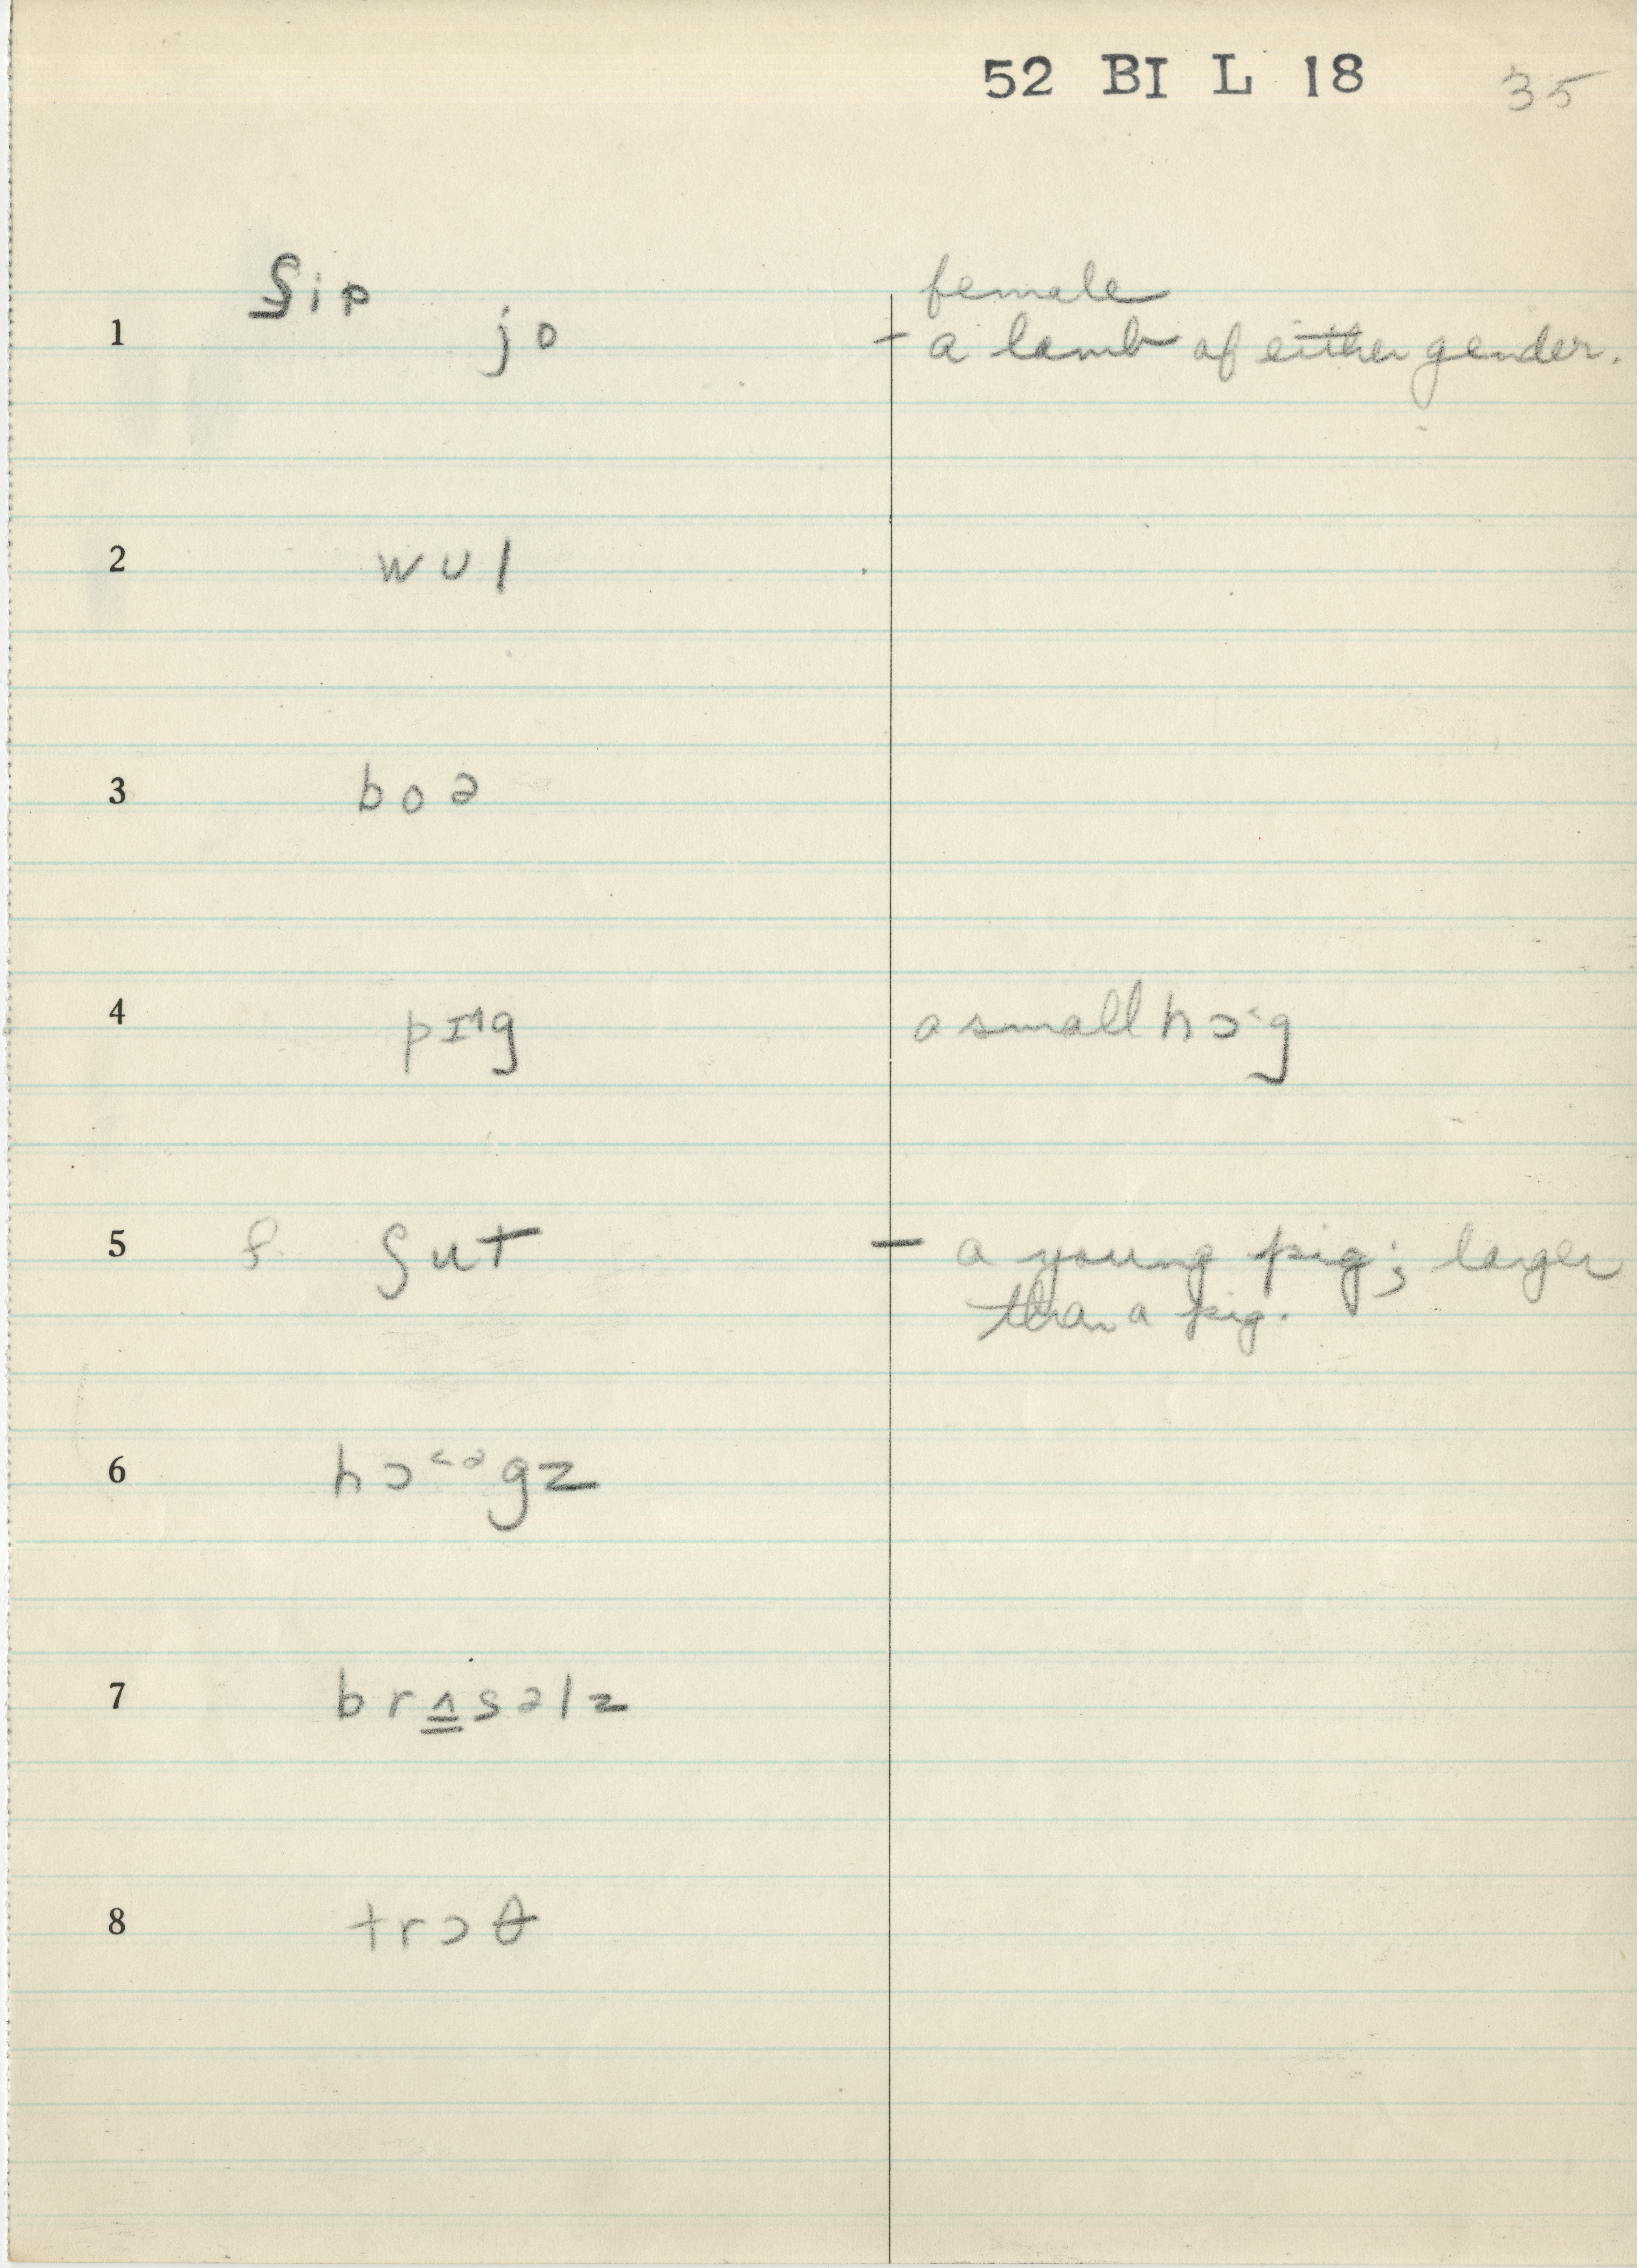 52 BI L 18 35
ʃip female
1 jo - a lamb of either gender.
2 wul
3 boə
4 pɪ^ɜg a small hɔ˂g
5 f. ʃut - a young pig; larger
than a pig.
6 hɔ˂əgz
7 brʌsəlz
8 trɔθ